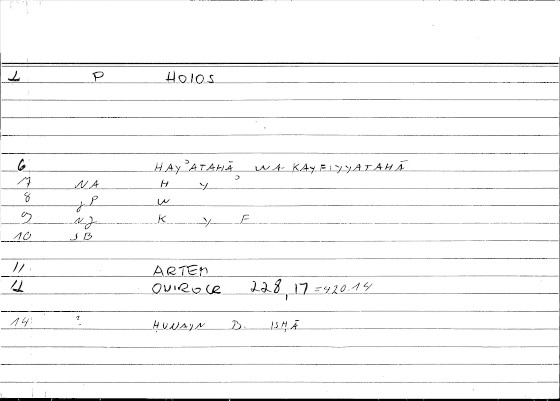 1 P HOLOS
6 HAYʾATAHĀ WA KAYFIYYATAHĀ
7 NA H Y ʾ
8 JP W
9 NJ K Y F
10 JB
11 ARTEM
228, 17 = 420 14
14 ? ḤUNAYN B. ISḤĀ